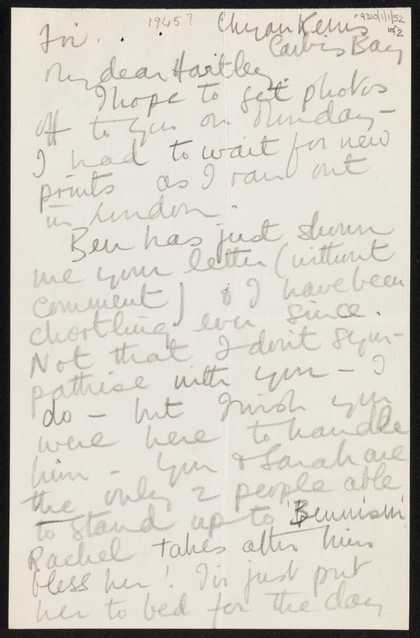 1945?
9320/1/1/52
1 of 2
Fri. . .
Chy an Kerris
Carbis Bay
My dear Hartley.
I hope to get photos
off to you on Monday –
I had to wait for new
prints as I ran out
in London.
Ben has just shown
me your letter (without
comment) & I have been
chortling ever since.
Not that I don't sym-
pathise with you – I
do – but I wish you
were here to handle
him – You & Sarah are
the only 2 people able
to stand up to 'Bennism'
Rachel takes after him
bless her! I've just put
her to bed for the day